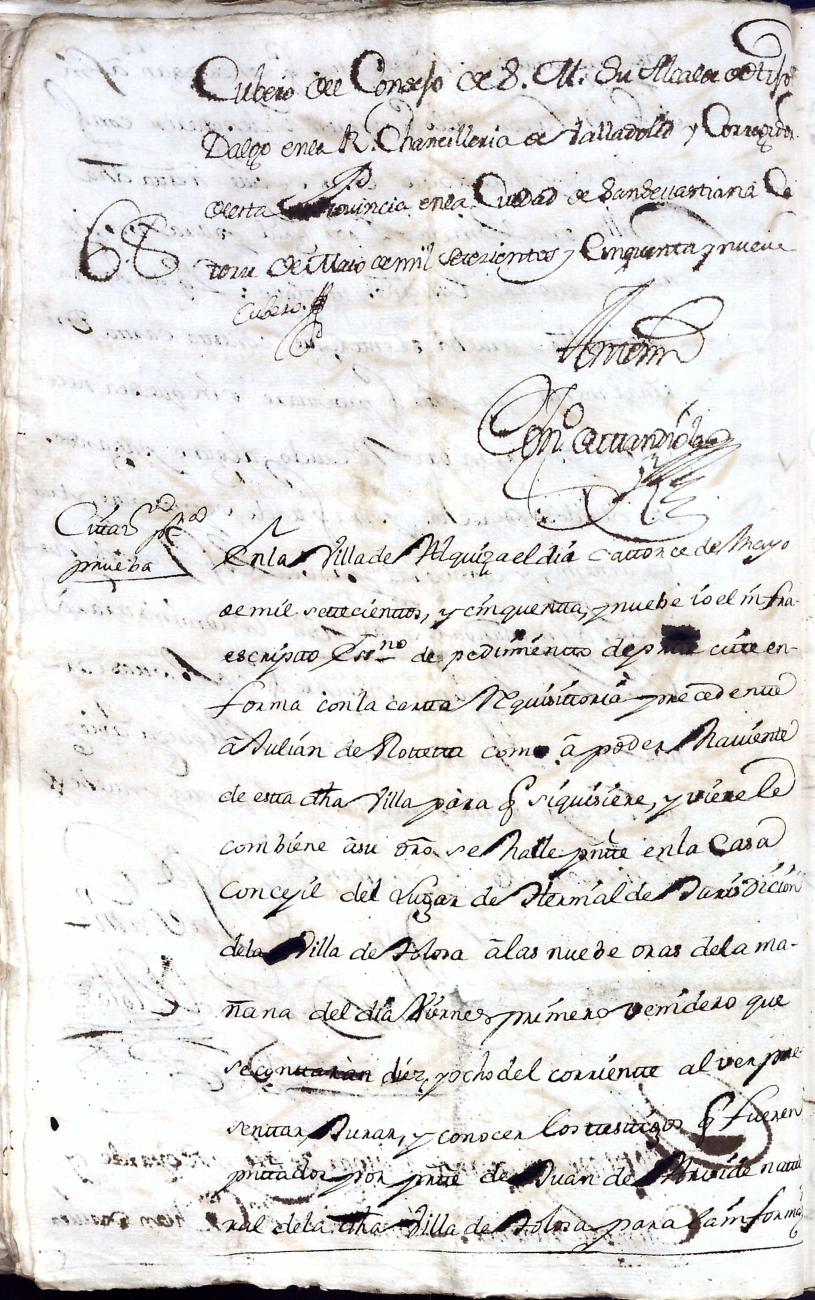 Cubero del Consejo de S. M. su Alcalde de Hijos
Dalgo en la Rl. Chancilleria de Valladolid y Corregidor
de esta Provincia en la Ciudad de SanSevastian a Ca
torze de Maio de mil setecientos y Cinquenta y nueve
Cubero
Ante mi
Citaz.on
prueba
En la Villa de Alquiza el dia Cattorce de Mayo
de mil settecienttos, y cinquentta, y nuebe io el infra-
escripto Ess.no de pedimentto de cite en
forma con la cartta Requisittoria precedentte
â Julian de Rottetta como â poder Haviente
de estta dha Villa para q siquisiere, y viere le
combiene âsu dro se Halle pntte en la Casa
Concejil del Lugar de Hernialde Jurisdicion
dela Villa de Tolosa âlas nuebe oras dela ma-
ñana del dia Viernes primero venidero que
se conttaran diez, y ocho del corrientte al ver pre
senttar, Jurar, y conocer los ttesttigos q fueren
pnttados por partte de Juan de nattu
ral dela dha Villa de Tolosa para la informa